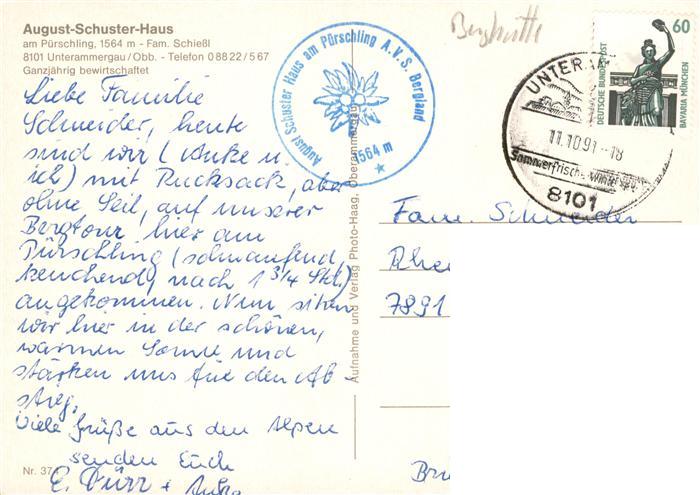 August-Schuster-Haus
am Pürschling, 1564 m - Fam. Schießl
8101 Unterammergau/Obb. - Telefon 0 88 22 / 5 67
Ganzjährig bewirtschaftet
Liebe Familie
Schneider, heute
sind wir (Anke u.
ich) mit Rucksack, aber
ohne Seil, auf unserer
Bergtour hier am
Pürschling (schnaufend,
keuchend, nach 1 3/4 Std.)
angekommen. Nun sitzen
wir hier in der schönen,
warmen Sonne und
stärken uns für den Ab-
stieg.
Viele Grüße aus den Alpen
senden Euch
E. Dürr + Anke
Nr. 37
August Schuster Haus am Pürschling A.V.S. Bergland
1564 m
Aufnahme und Verlag Photo-Haag, Oberammergau
Berghütte
60
DEUTSCHE BUNDESPOST
BAVARIA MÜNCHEN
UNTERAM
11.10.91-18
Sommerfrische
8101
Fam. Schneider
Rhe
7891
Br